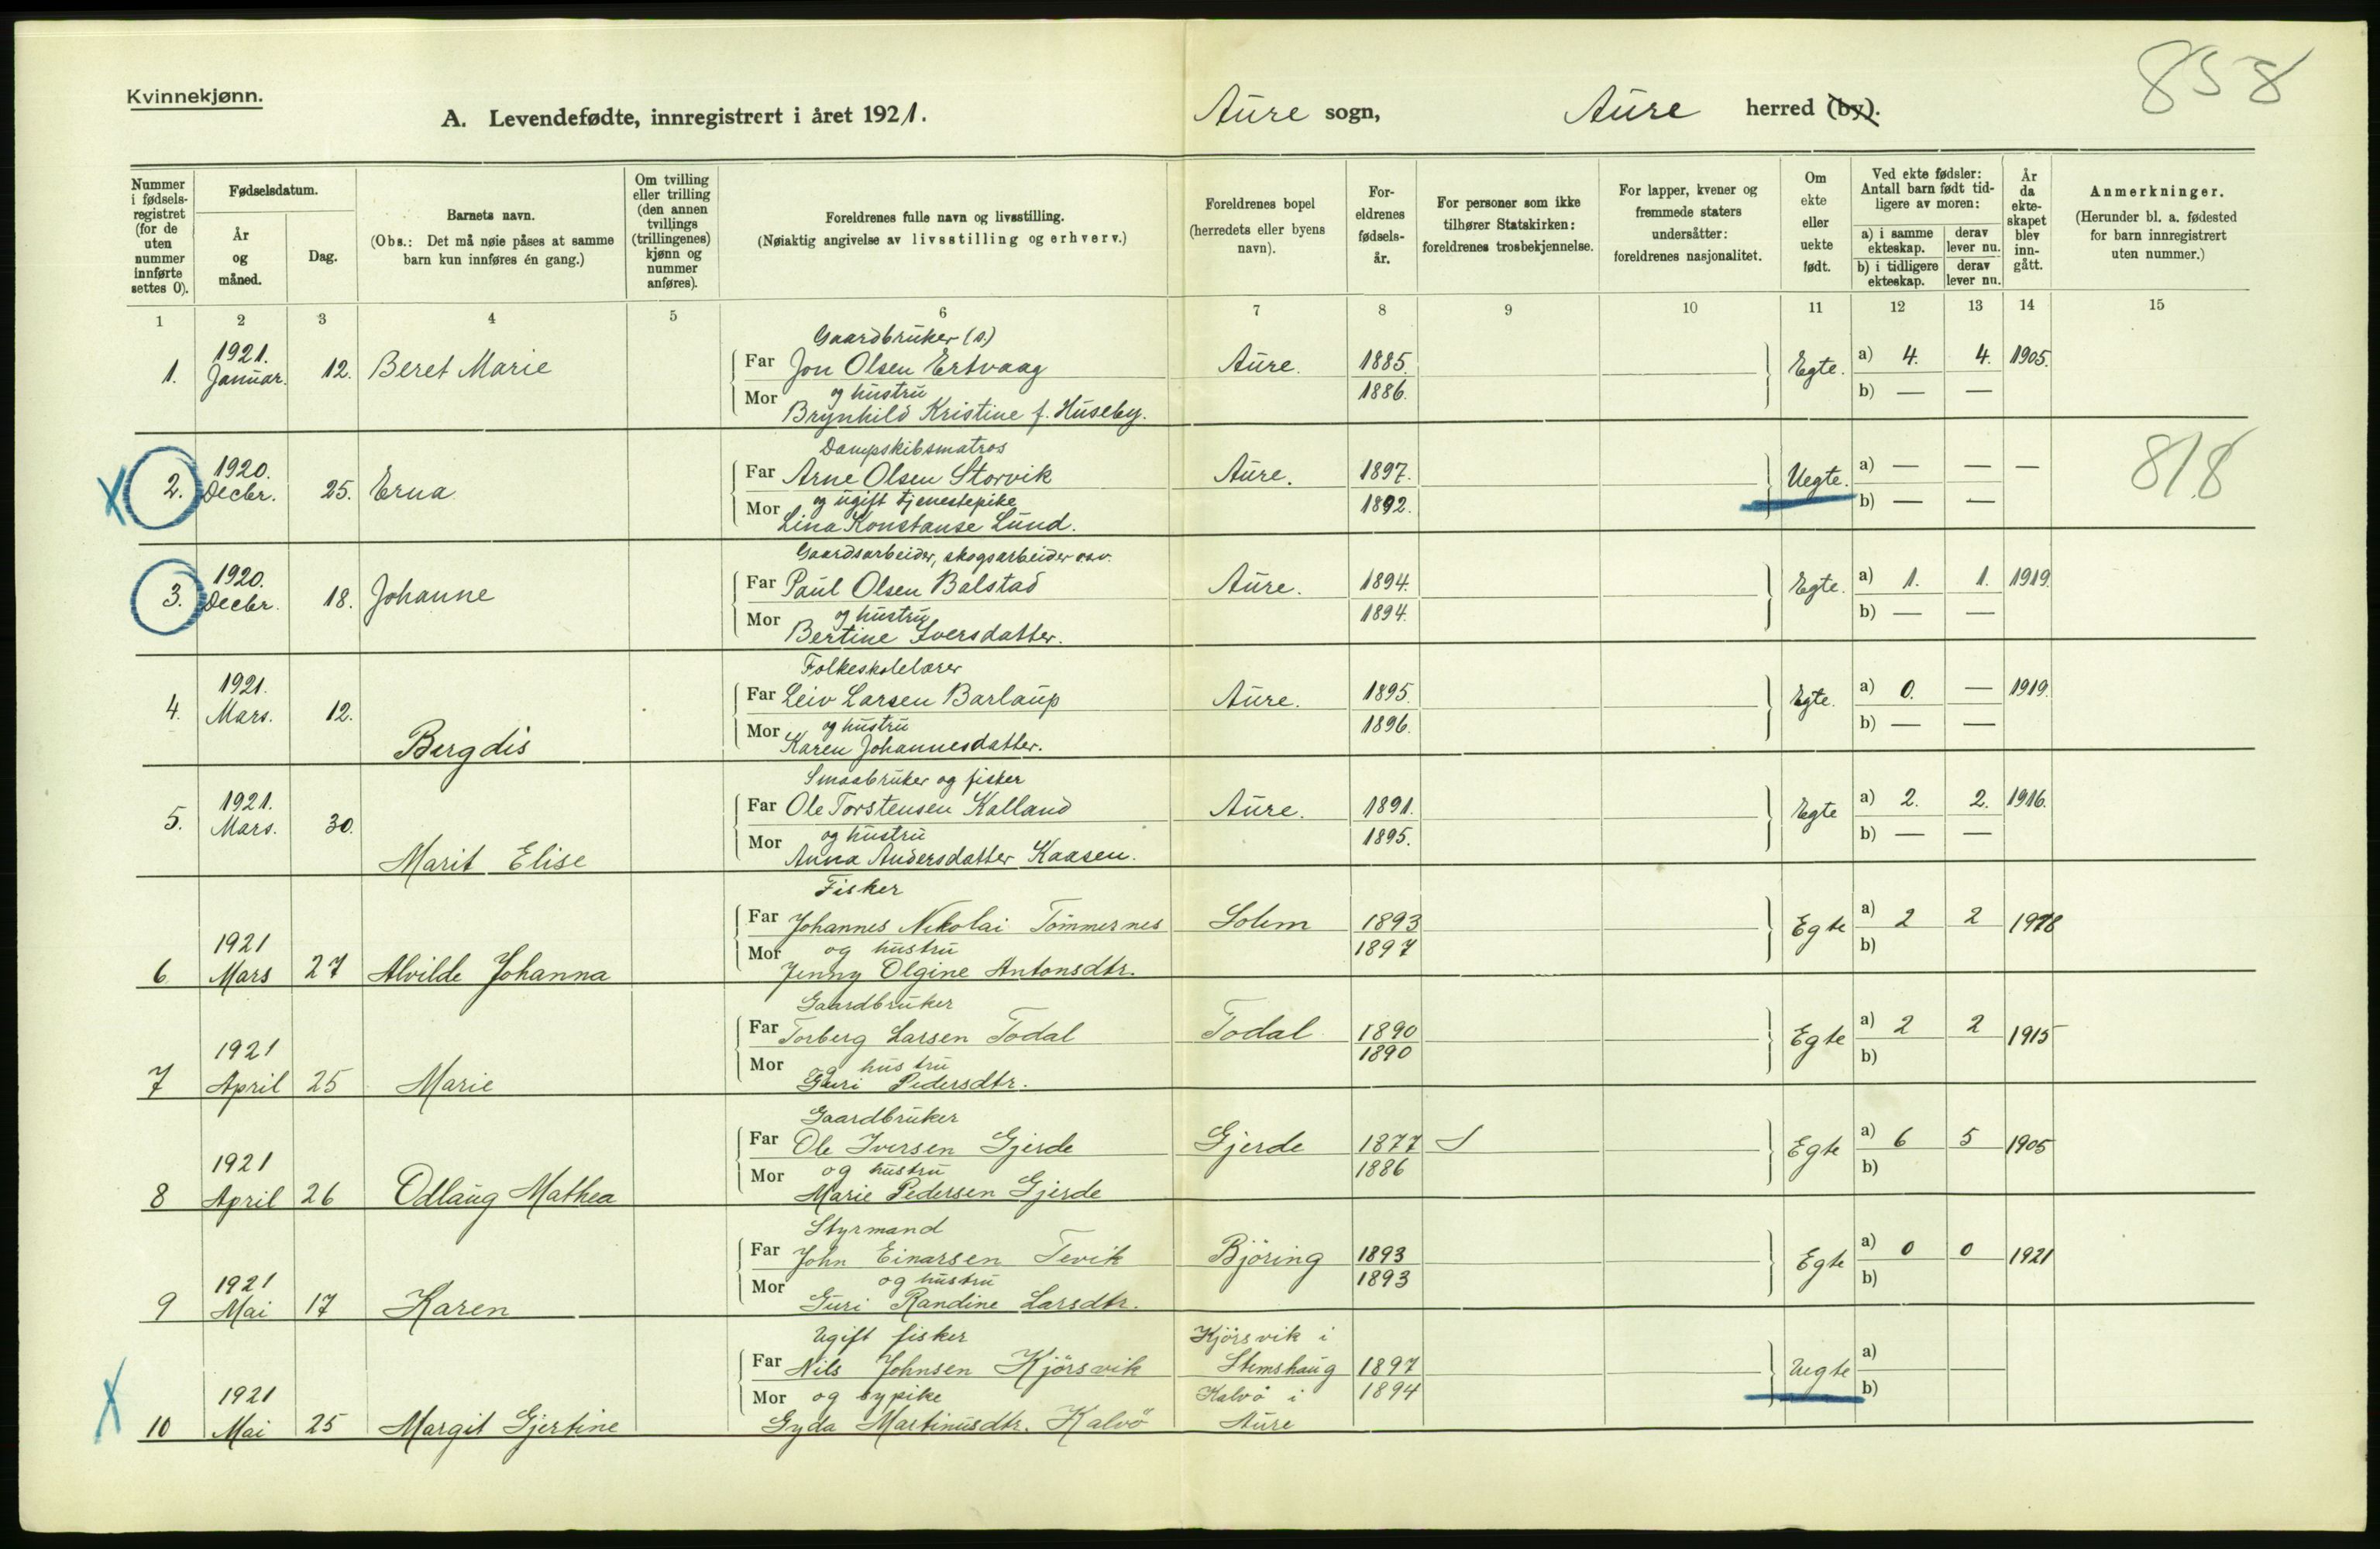 Kvinnekjønn.
858
A. Levendefødte, innregistrert i året 1921.
Aure sogn,
Aure herred (by).
Nummer i fødsels-registret (for de uten nummer innførte settes 0).
Fødselsdatum.
År og måned.
Dag.
Barnets navn.
(Obs.: Det må nøie påses at samme barn kun innføres én gang.)
Om tvilling eller trilling (den annen tvillings (trillingenes) kjønn og nummer anføres).
Foreldrenes fulle navn og livsstilling.
(Nøiaktig angivelse av livsstilling og erhverv.)
Foreldrenes bopel (herredets eller byens navn).
For-eldrenes fødsels-år.
For personer som ikke tilhører Statskirken: foreldrenes trosbekjennelse.
For lapper, kvener og fremmede staters undersåtter: foreldrenes nasjonalitet.
Om ekte eller uekte født.
Ved ekte fødsler: Antall barn født tid-ligere av moren:
a) i samme ekteskap.
derav lever nu.
b) i tidligere ekteskap.
derav lever nu.
År da ekte-skapet blev inn-gått.
Anmerkninger.
(Herunder bl. a. fødested for barn innregistrert uten nummer.)
1 2 3 4 5 6 7 8 9 10 11 12 13 14 15
Gaardbruker (s.)
1. 1921. Januar. 12. Beret Marie
Far Jon Olsen Ertvaag Aure. 1885. Egte. a) 4. 4. 1905.
Mor og hustru 1886. b) — —
Brynhild Kristine f. Huseby.
Dampskibsmatros
2. 1920. Decbr. 25. Erna
Far Arne Olsen Storvik Aure. 1897. Uegte. a) — — — 818
Mor og ugift tjenestepike 1892. b) — —
Lina Konstanse Lund.
Gaardsarbeider, skogsarbeider o.s.v.
3. 1920. Decbr. 18. Johanne
Far Paul Olsen Balstad Aure. 1894. Egte. a) 1. 1. 1919.
Mor og hustru 1894. b) — —
Bertine Iversdatter.
Folkeskolelærer
4. 1921. Mars. 12. Bergdis
Far Leiv Larsen Barlaup Aure. 1895. Egte. a) 0. — 1919.
Mor og hustru 1896. b) — —
Karen Johannesdatter.
Smaabruker og fisker
5. 1921. Mars. 30. Marit Elise
Far Ole Torstensen Kalland Aure. 1891. Egte a) 2. 2. 1916.
Mor og hustru 1895. b) — —
Anna Andersdatter Kaasen.
Fisker
6 1921 Mars 27 Alvilde Johanna
Far Johannes Nikolai Tömmernes Solem 1893 Egte a) 2 2 1918
Mor og hustru 1897 b)
Jenny Olgine Antonsdtr.
Gaardbruker
7 1921 April 25 Marie
Far Torberg Larsen Todal Todal 1890 Egte a) 2 2 1915
Mor og hustru 1890 b)
Guri Pedersdtr.
Gaardbruker
8 1921 April 26 Odlaug Mathea
Far Ole Iversen Gjerde Gjerde 1877 Egte a) 6 5 1905
Mor og hustru 1886 b)
Marie Pedersen Gjerde
Styrmand
9 1921 Mai 17 Karen
Far John Einarsen Tevik Björing 1893 Egte a) 0 0 1921
Mor og hustru 1893 b)
Guri Randine Larsdtr.
Ugift fisker Kjörsvik i
10 1921 Mai 25 Margit Gjertine
Far Nils Johnsen Kjörsvik Stemshaug 1897 Uegte a)
Mor og bypike Kalvö i 1894 b)
Gyda Martinusdtr. Kalvö Aure